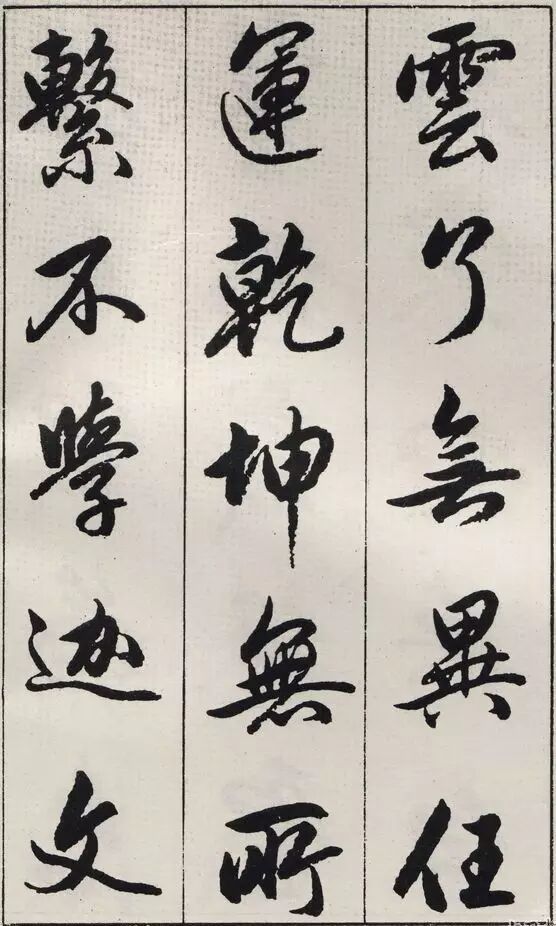 雲兮無異任
運乾坤無所
繫不學文